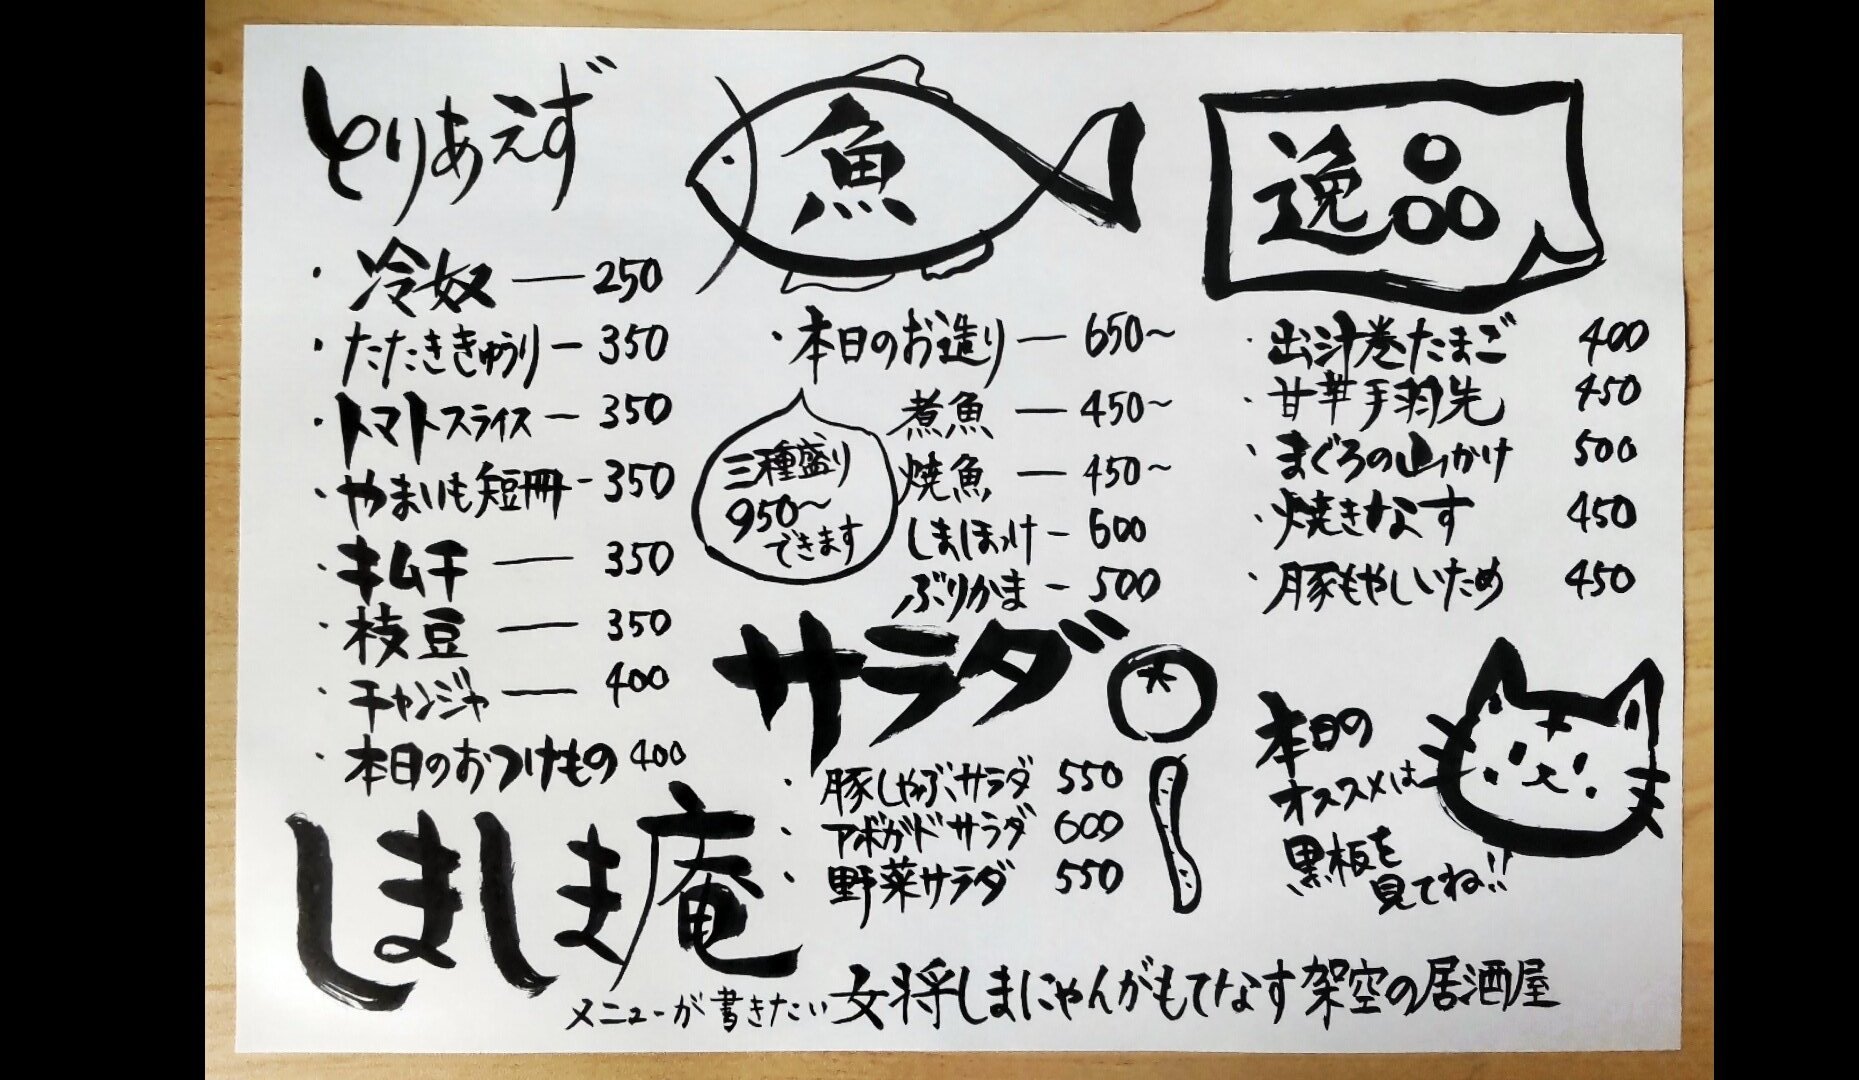 とりあえず
・冷奴 — 250
・たたききゅうり — 350
・トマトスライス — 350
・やまいも短冊 - 350
・キムチ — 350
・枝豆 — 350
・チャンジャ — 400
・本日のおつけもの 400
魚
・本日のお造り — 650〜
三種盛り
950〜
できます
煮魚 — 450〜
焼魚 — 450〜
しまほっけ - 600
ぶりかま - 500
サラダ
・豚しゃぶサラダ 550
・アボガドサラダ 600
・野菜サラダ 550
逸品
・出汁巻たまご 400
・甘辛手羽先 450
・まぐろの山かけ 500
・焼きなす 450
・豚もやしいため 450
本日の
オススメは
黒板を
見てね!!
しましま庵
メニューが書きたい女将しまにゃんがもてなす架空の居酒屋